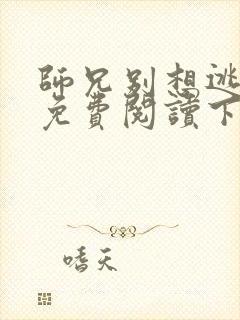 師兄別想逃
免費閱讀下
嗜天